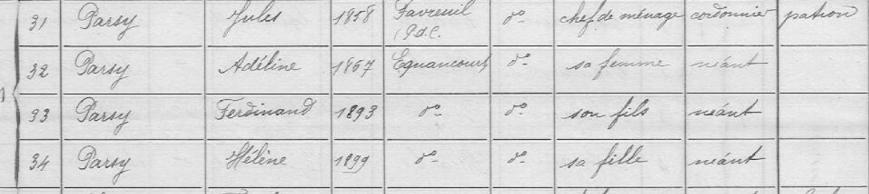 31 Parsy Jules 1858 Favreuil d° chef de ménage cordonnier patron
P.d.C.
32 Parsy Adéline 1867 Equancourt d° sa femme néant
33 Parsy Ferdinand 1893 d° d° son fils néant
34 Parsy Hélène 1899 d° d° sa fille néant